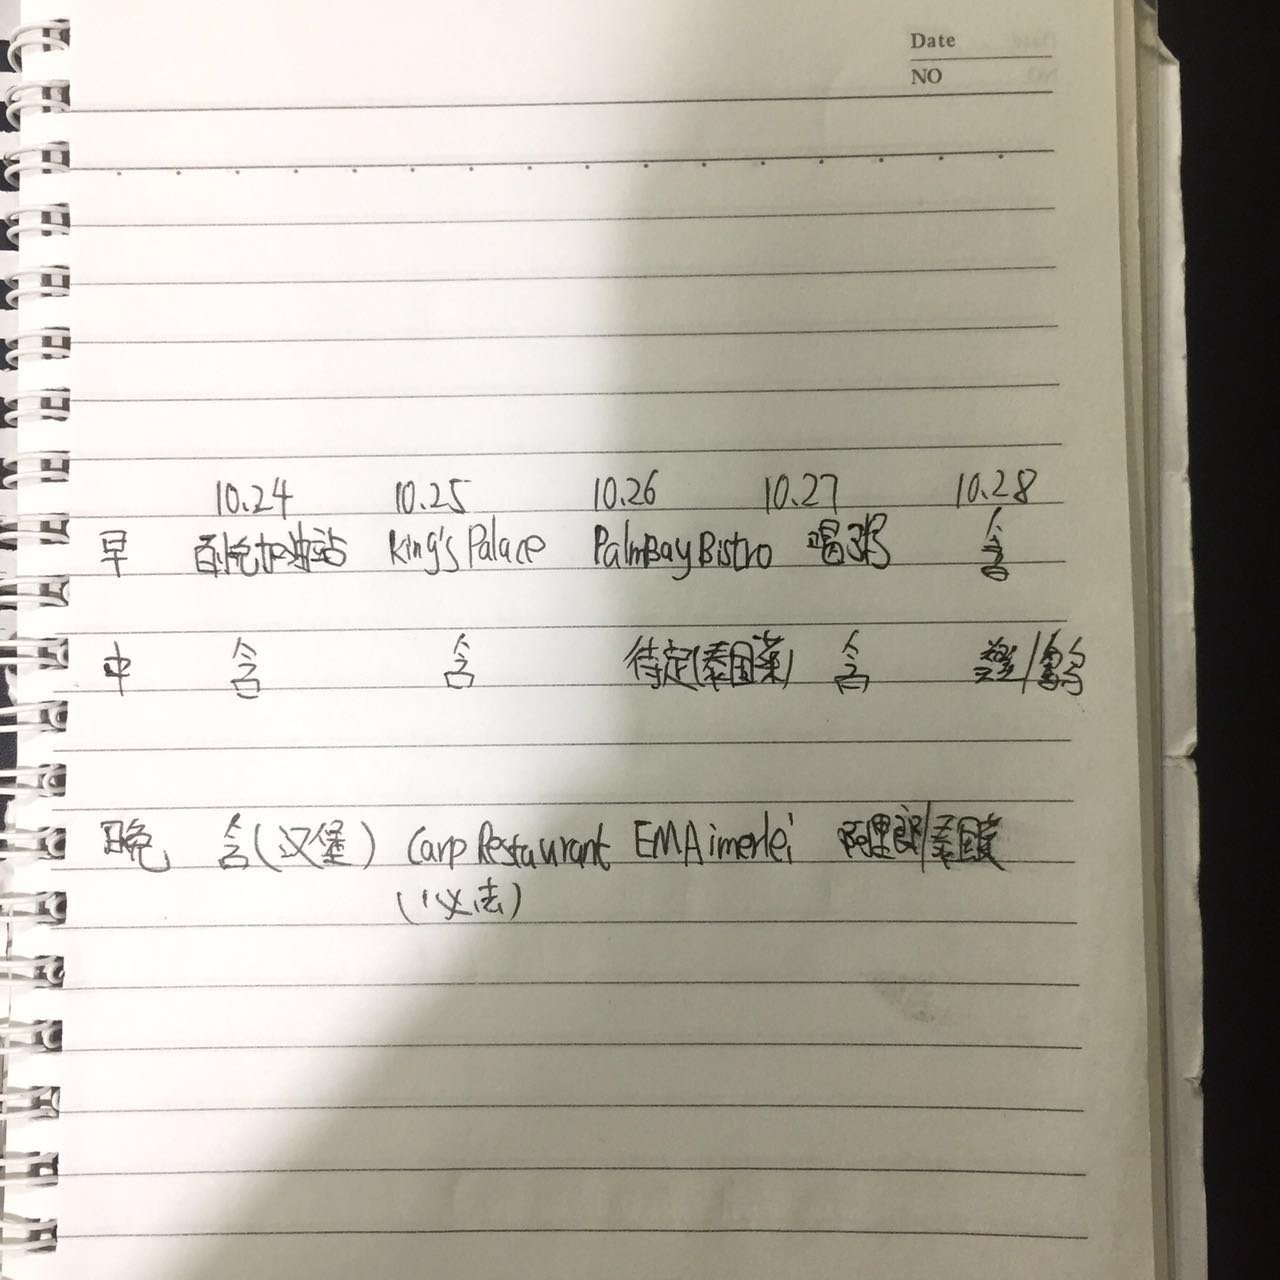 Date
NO
10.24 10.25 10.26 10.27 10.28
早 加油站 King's Palace PalmBay Bistro 喝粥 含
中 含 含 待定(泰国菜) 含
晚 含(汉堡) Carp Restaurant EMAimerlei 阿里郎/泰国菜
(必去)